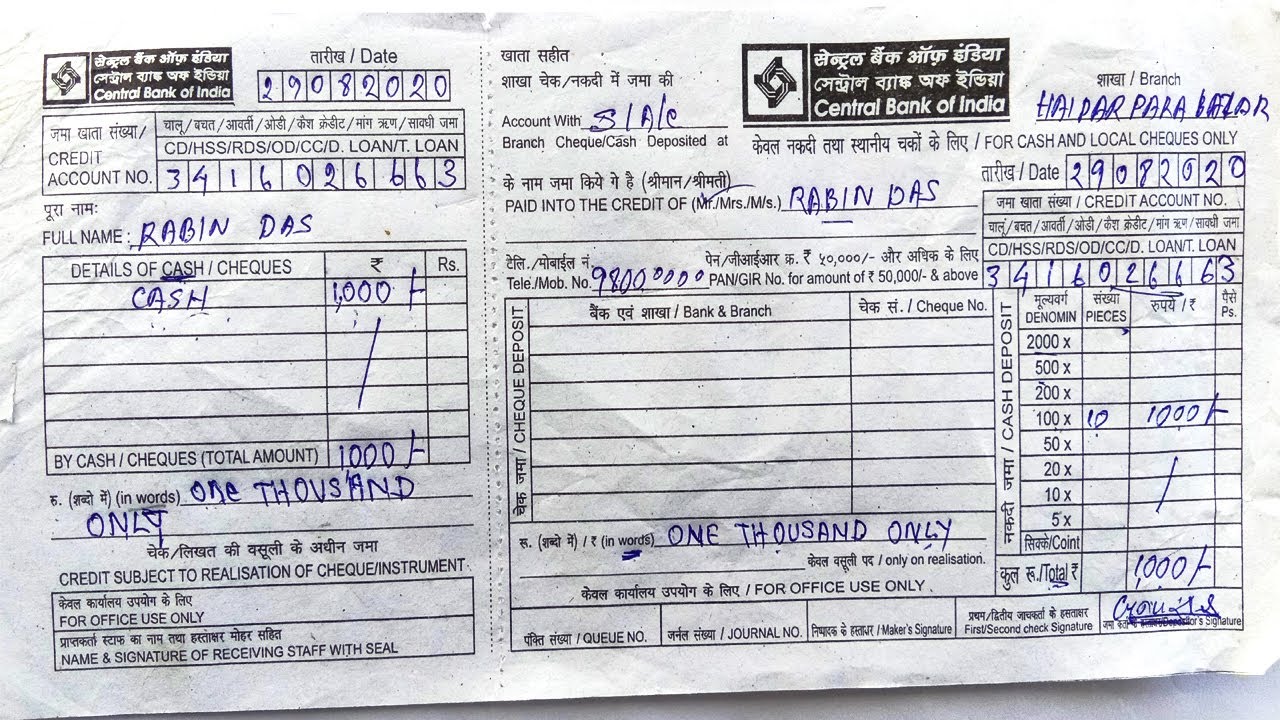 सेन्ट्रल बैंक ऑफ़ इंडिया
সেন্ট্রাল ব্যাঙ্ক অফ ইন্ডিয়া
Central Bank of India
तारीख / Date
29082020
जमा खाता संख्या/
CREDIT
ACCOUNT NO.
चालू/बचत/आवर्ती/ओडी/कैश क्रेडीट/मांग ऋण/सावधी जमा
CD/HSS/RDS/OD/CC/D. LOAN/T. LOAN
3416026663
पूरा नामः
FULL NAME : RABIN DAS
DETAILS OF CASH / CHEQUES ₹ Rs.
CASH 1,000/-
BY CASH / CHEQUES (TOTAL AMOUNT) 1000/-
रु. (शब्दो में) (in words) One THOUSAND
ONLY
चेक/लिखत की वसूली के अधीन जमा
CREDIT SUBJECT TO REALISATION OF CHEQUE/INSTRUMENT
केवल कार्यालय उपयोग के लिए
FOR OFFICE USE ONLY
प्राप्तकर्ता स्टाफ का नाम तथा हस्ताक्षर मोहर सहित
NAME & SIGNATURE OF RECEIVING STAFF WITH SEAL
खाता सहीत
शाखा चेक/नकदी में जमा की
Account With S/A/c
Branch Cheque/Cash Deposited at
सेन्ट्रल बैंक ऑफ़ इंडिया
সেন্ট্রাল ব্যাঙ্ক অফ ইন্ডিয়া
Central Bank of India
शाखा / Branch
HAIDAR PARA BAZAR
केवल नकदी तथा स्थानीय चकों के लिए / FOR CASH AND LOCAL CHEQUES ONLY
तारीख / Date 29082020
के नाम जमा किये गे है (श्रीमान/श्रीमती)
PAID INTO THE CREDIT OF (Mr./Mrs./M/s.) RABIN DAS
जमा खाता संख्या / CREDIT ACCOUNT NO.
चालू/बचत/आवर्ती/ओडी/कैश क्रेडीट/मांग ऋण/सावधी जमा
CD/HSS/RDS/OD/CC/D. LOAN/T. LOAN
3416026663
टेलि./मोबाईल नं. पेन/जीआईआर क्र. ₹ ५०,०००/- और अधिक के लिए
Tele./Mob. No. 9800000000 PAN/GIR No. for amount of ₹ 50,000/- & above
चेक जमा / CHEQUE DEPOSIT
बैंक एवं शाखा / Bank & Branch चेक सं. / Cheque No.
नकदी जमा / CASH DEPOSIT
मूल्यवर्ग संख्या रुपये / ₹ पैसे
DENOMIN PIECES Ps.
2000 x
500 x
200 x
100 x 10 1000/-
50 x
20 x
10 x
5 x
सिक्के/Coint
कुल रू./Total ₹ 1000/-
रू. (शब्दो में) / ₹ (in words) ONE THOUSAND ONLY
केवल वसूली पद / only on realisation.
केवल कार्यालय उपयोग के लिए / FOR OFFICE USE ONLY
पंक्ति संख्या / QUEUE NO.
जर्नल संख्या / JOURNAL NO.
निष्पादक के हस्ताक्षर / Maker's Signature
प्रथम/द्वितीय जाचकर्ता के हसताक्षर
First/Second check Signature
जमा कर्ता के हस्ताक्षर/Depositor's Signature